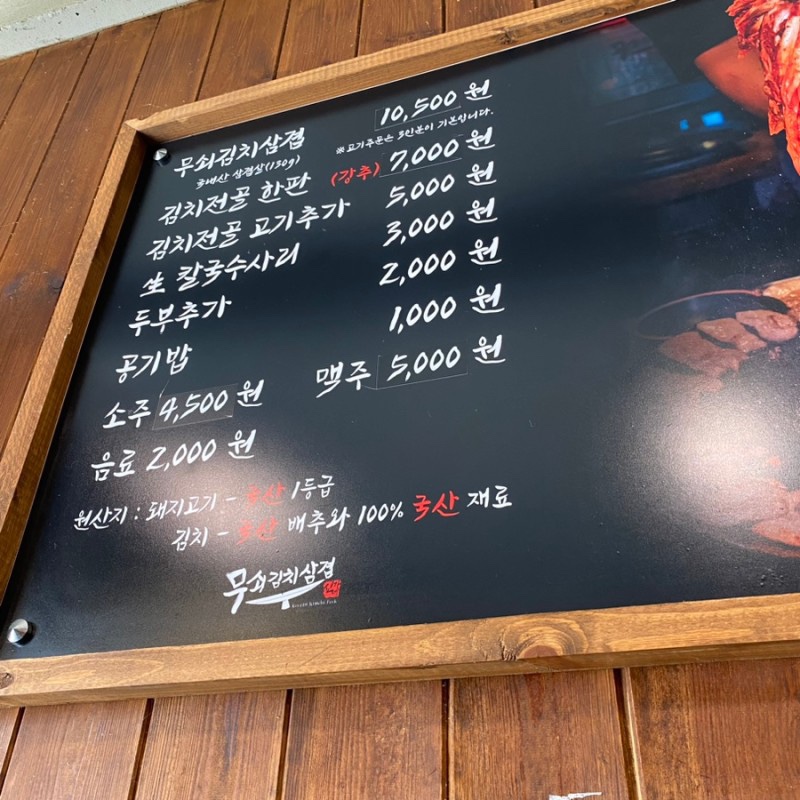 무쇠김치삼겹 10,500 원
국내산 삼겹살(130g) ※고기주문은 3인분이 기본입니다.
김치전골 한판 (강추) 7,000 원
김치전골 고기추가 5,000 원
生 칼국수사리 3,000 원
두부추가 2,000 원
공기밥 1,000 원
소주 4,500 원 맥주 5,000 원
음료 2,000 원
원산지 : 돼지고기 - 국산 1등급
김치 - 국산 배추와 100% 국산 재료
무쇠김치삼겹